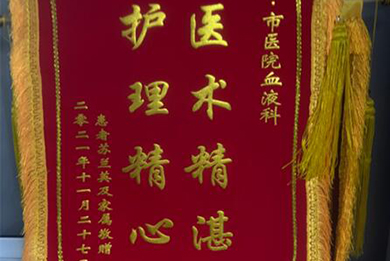 市医院血液科
医术精湛
护理精心
患者苏兰英及家属敬赠
二零二一年十一月二十七日